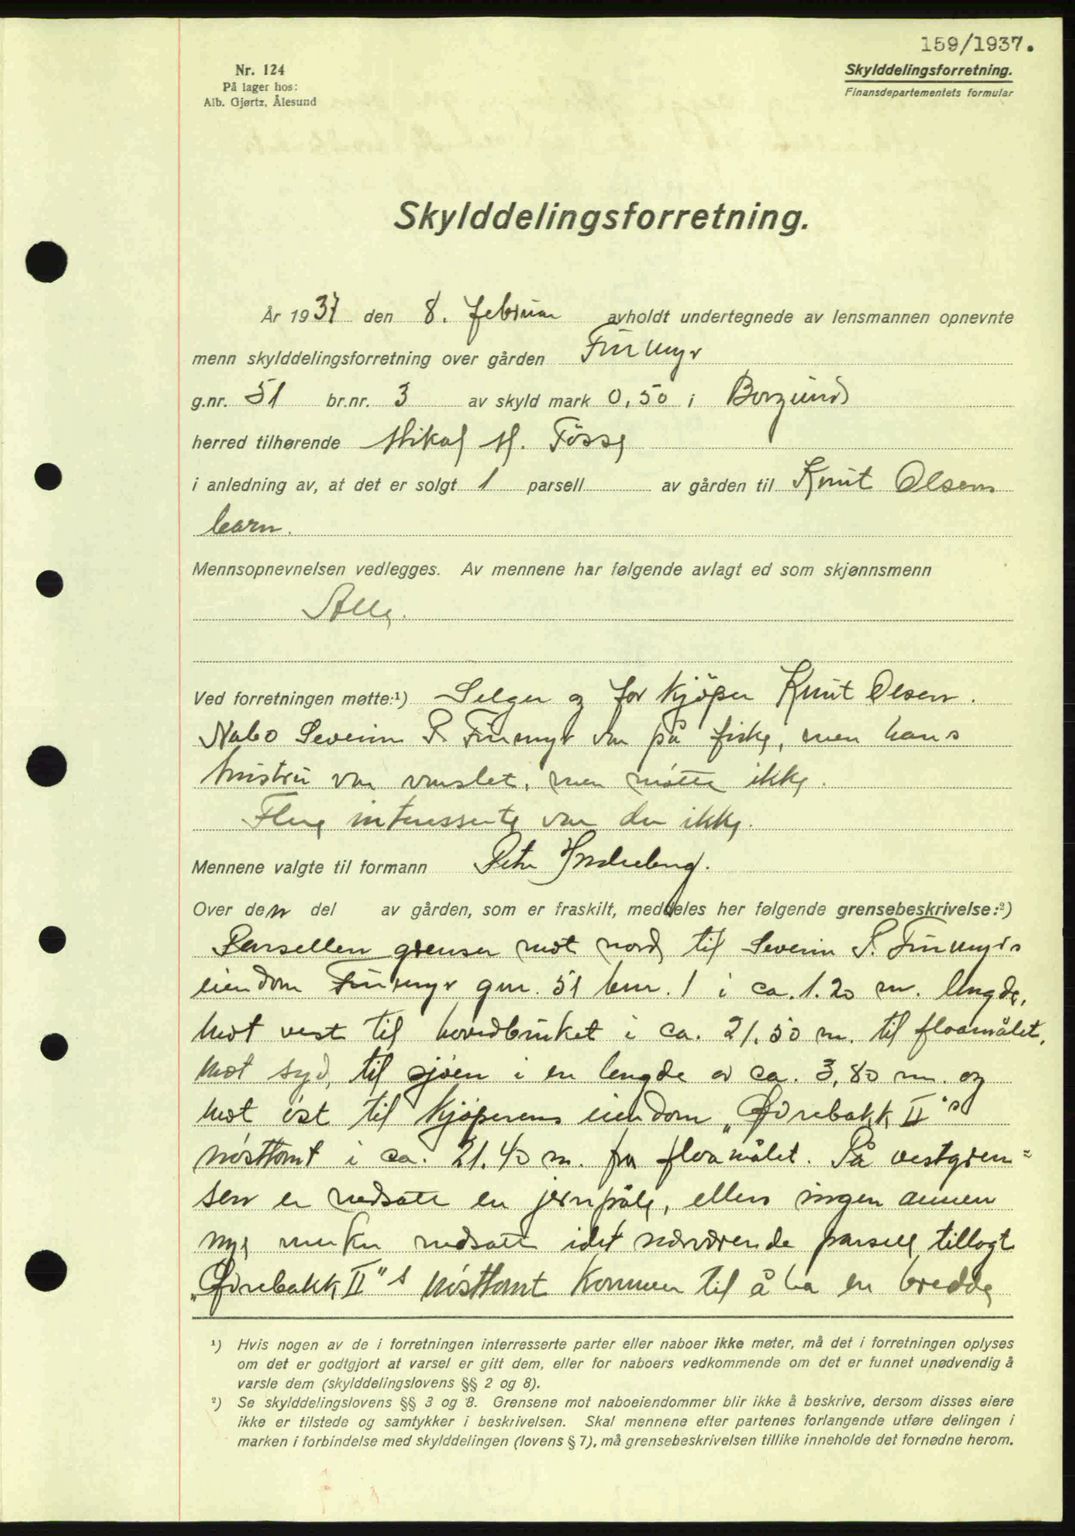 159/1937.
Nr. 124
På lager hos:
Alb. Gjørtz, Ålesund
Skylddelingsforretning.
Finansdepartementets formular
Skylddelingsforretning.
År 1937 den 8. februar avholdt undertegnede av lensmannen opnevnte
menn skylddelingsforretning over gården Furmyr
g.nr. 51 br.nr. 3 av skyld mark 0,50 i Borgund
herred tilhørende Mikal M.
i anledning av, at det er solgt 1 parsell av gården til Knut Olsens
barn.
Mennsopnevnelsen vedlegges. Av mennene har følgende avlagt ed som skjønnsmenn
Alle.
Ved forretningen møtte:¹) Selger og for kjøper Knut Olsen.
Nabo Severin P. Furmyr var på fiske, men hans
hustru var varslet, men møtte ikke.
Flere interesserte var der ikke.
Mennene valgte til formann Petter
Over den del av gården, som er fraskilt, meddeles her følgende grensebeskrivelse:²)
Parsellen grenser mot nord til Severin P. Furmyrs
eiendom Furmyr gnr. 51 bnr. 1 i ca. 1.20 m. lengde,
mot vest til hovedbruket i ca. 21.50 m. til floamålet,
mot syd, til sjøen i en lengde av ca. 3,80 m. og
mot øst til kjøperens eiendom „Øvrebakk II"s
nøsttomt i ca. 21.40 m. fra floamålet. På vestgren=
sen er nedsatt en jernpåle, ellers ingen annen
nye merker nedsatt idet nærværende parsell tillagt
„Øvrebakk II"s nøsttomt kommer til å ha en bredde
¹) Hvis nogen av de i forretningen interresserte parter eller naboer ikke møter, må det i forretningen oplyses
om det er godtgjort at varsel er gitt dem, eller for naboers vedkommende om det er funnet unødvendig å
varsle dem (skylddelingslovens §§ 2 og 8).
²) Se skylddelingslovens §§ 3 og 8. Grensene mot naboeiendommer blir ikke å beskrive, dersom disses eiere
ikke er tilstede og samtykker i beskrivelsen. Skal mennene efter partenes forlangende utføre delingen i
marken i forbindelse med skylddelingen (lovens § 7), må grensebeskrivelsen tillike inneholde det fornødne herom.